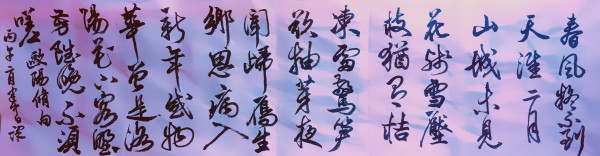 春風疑不到
天涯二月
山城未見
花殘雪壓
枝猶有桔
凍雷驚筍
欲抽芽夜
聞歸雁生
鄉思病入
新年感物
華曾是洛
陽花下客野
芳雖晚不須
嗟 歐陽脩句
丙午 日課